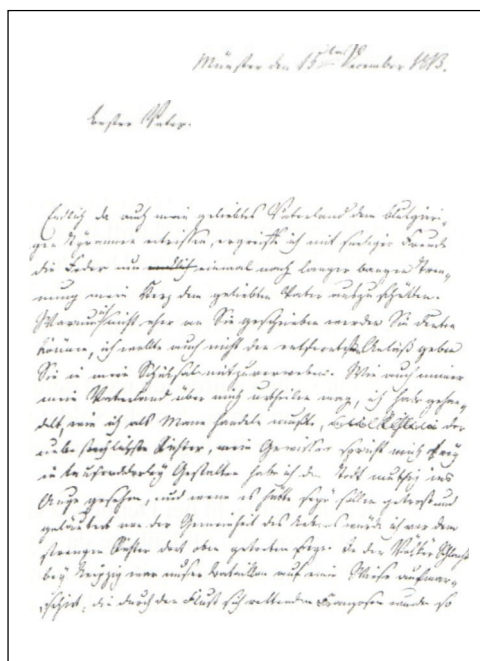 Münster den 15ten December 1813.
bester Vater.
Endlich da auch mein geliebtes Vaterland dem blutgieri-
gen Tyrannen entrissen, ergreife ich mit freudiger
die Feder um endlich einmal nach langer banger Tren-
nung mein Herz dem geliebten Vater auszuschütten.
Warum ich nicht eher an Sie geschrieben werden Sie
können, ich wollte auch nicht die entfernteste Anlaß geben
Sie in mein Schicksal mitzuverwickeln. Wie auch immer
mein Vaterland über mich urtheilen mag, ich habe gehan-
delt, wie ich als Mann handeln mußte, der
Richter, mein Gewissen spricht mich frey
in Gestalten habe ich dem Todt muthig ins
Auge gesehen, und wenn es hätte seyn sollen getrost und
von der Gemeinheit des Lebens würde ich vor dem
strengen Richter dort oben getreten seyn. In der Völker Schlacht
bey Leipzig war unser Bataillon auf eine Weise aufmar-
schirt, die durch den Fluß sich rettenden Franzosen wurden so